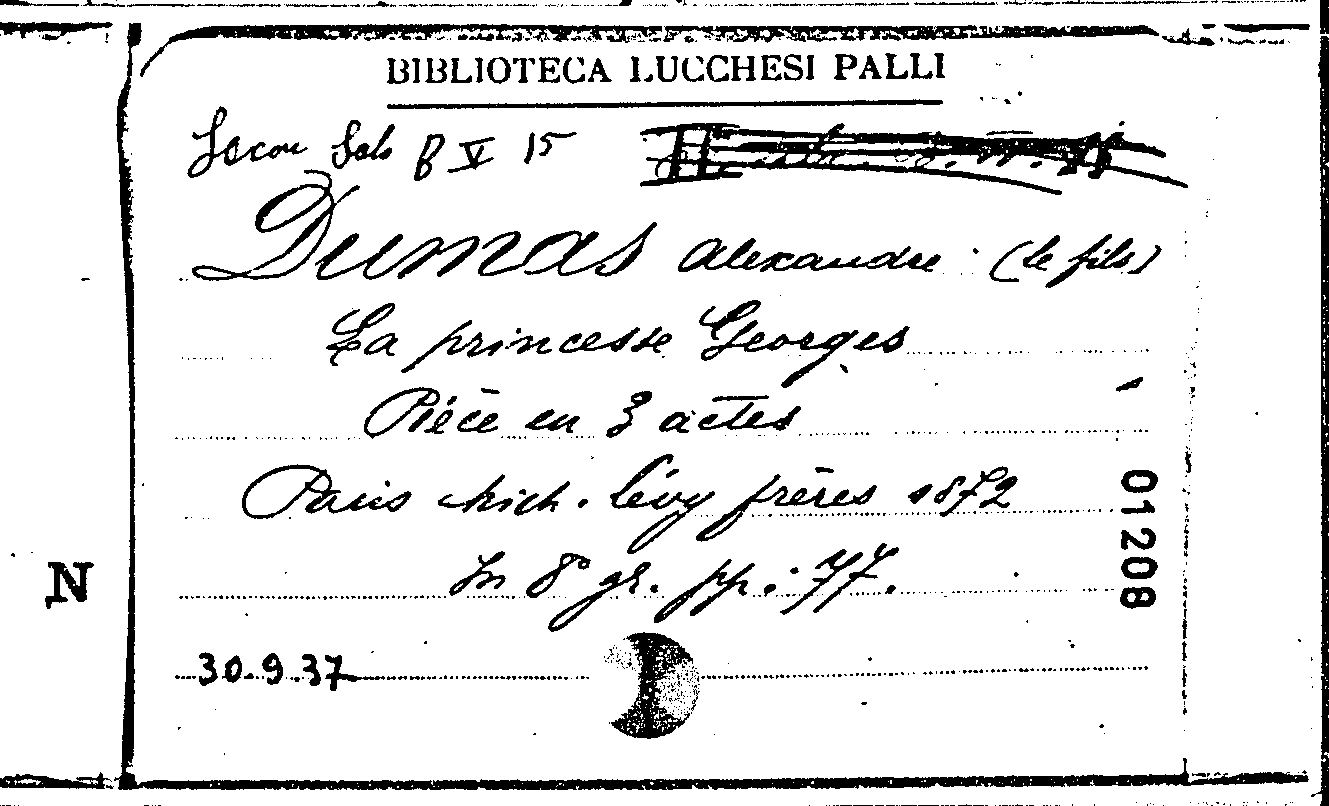 BIBLIOTECA LUCCHESI PALLI
Sala B V 15
Dumas Alexandre (le fils)
La princesse Georges
Pièce en 3 actes
Paris Mich. Lévy frères 1872
In 8° gr. pp. 77.
30.9.37
01208
N